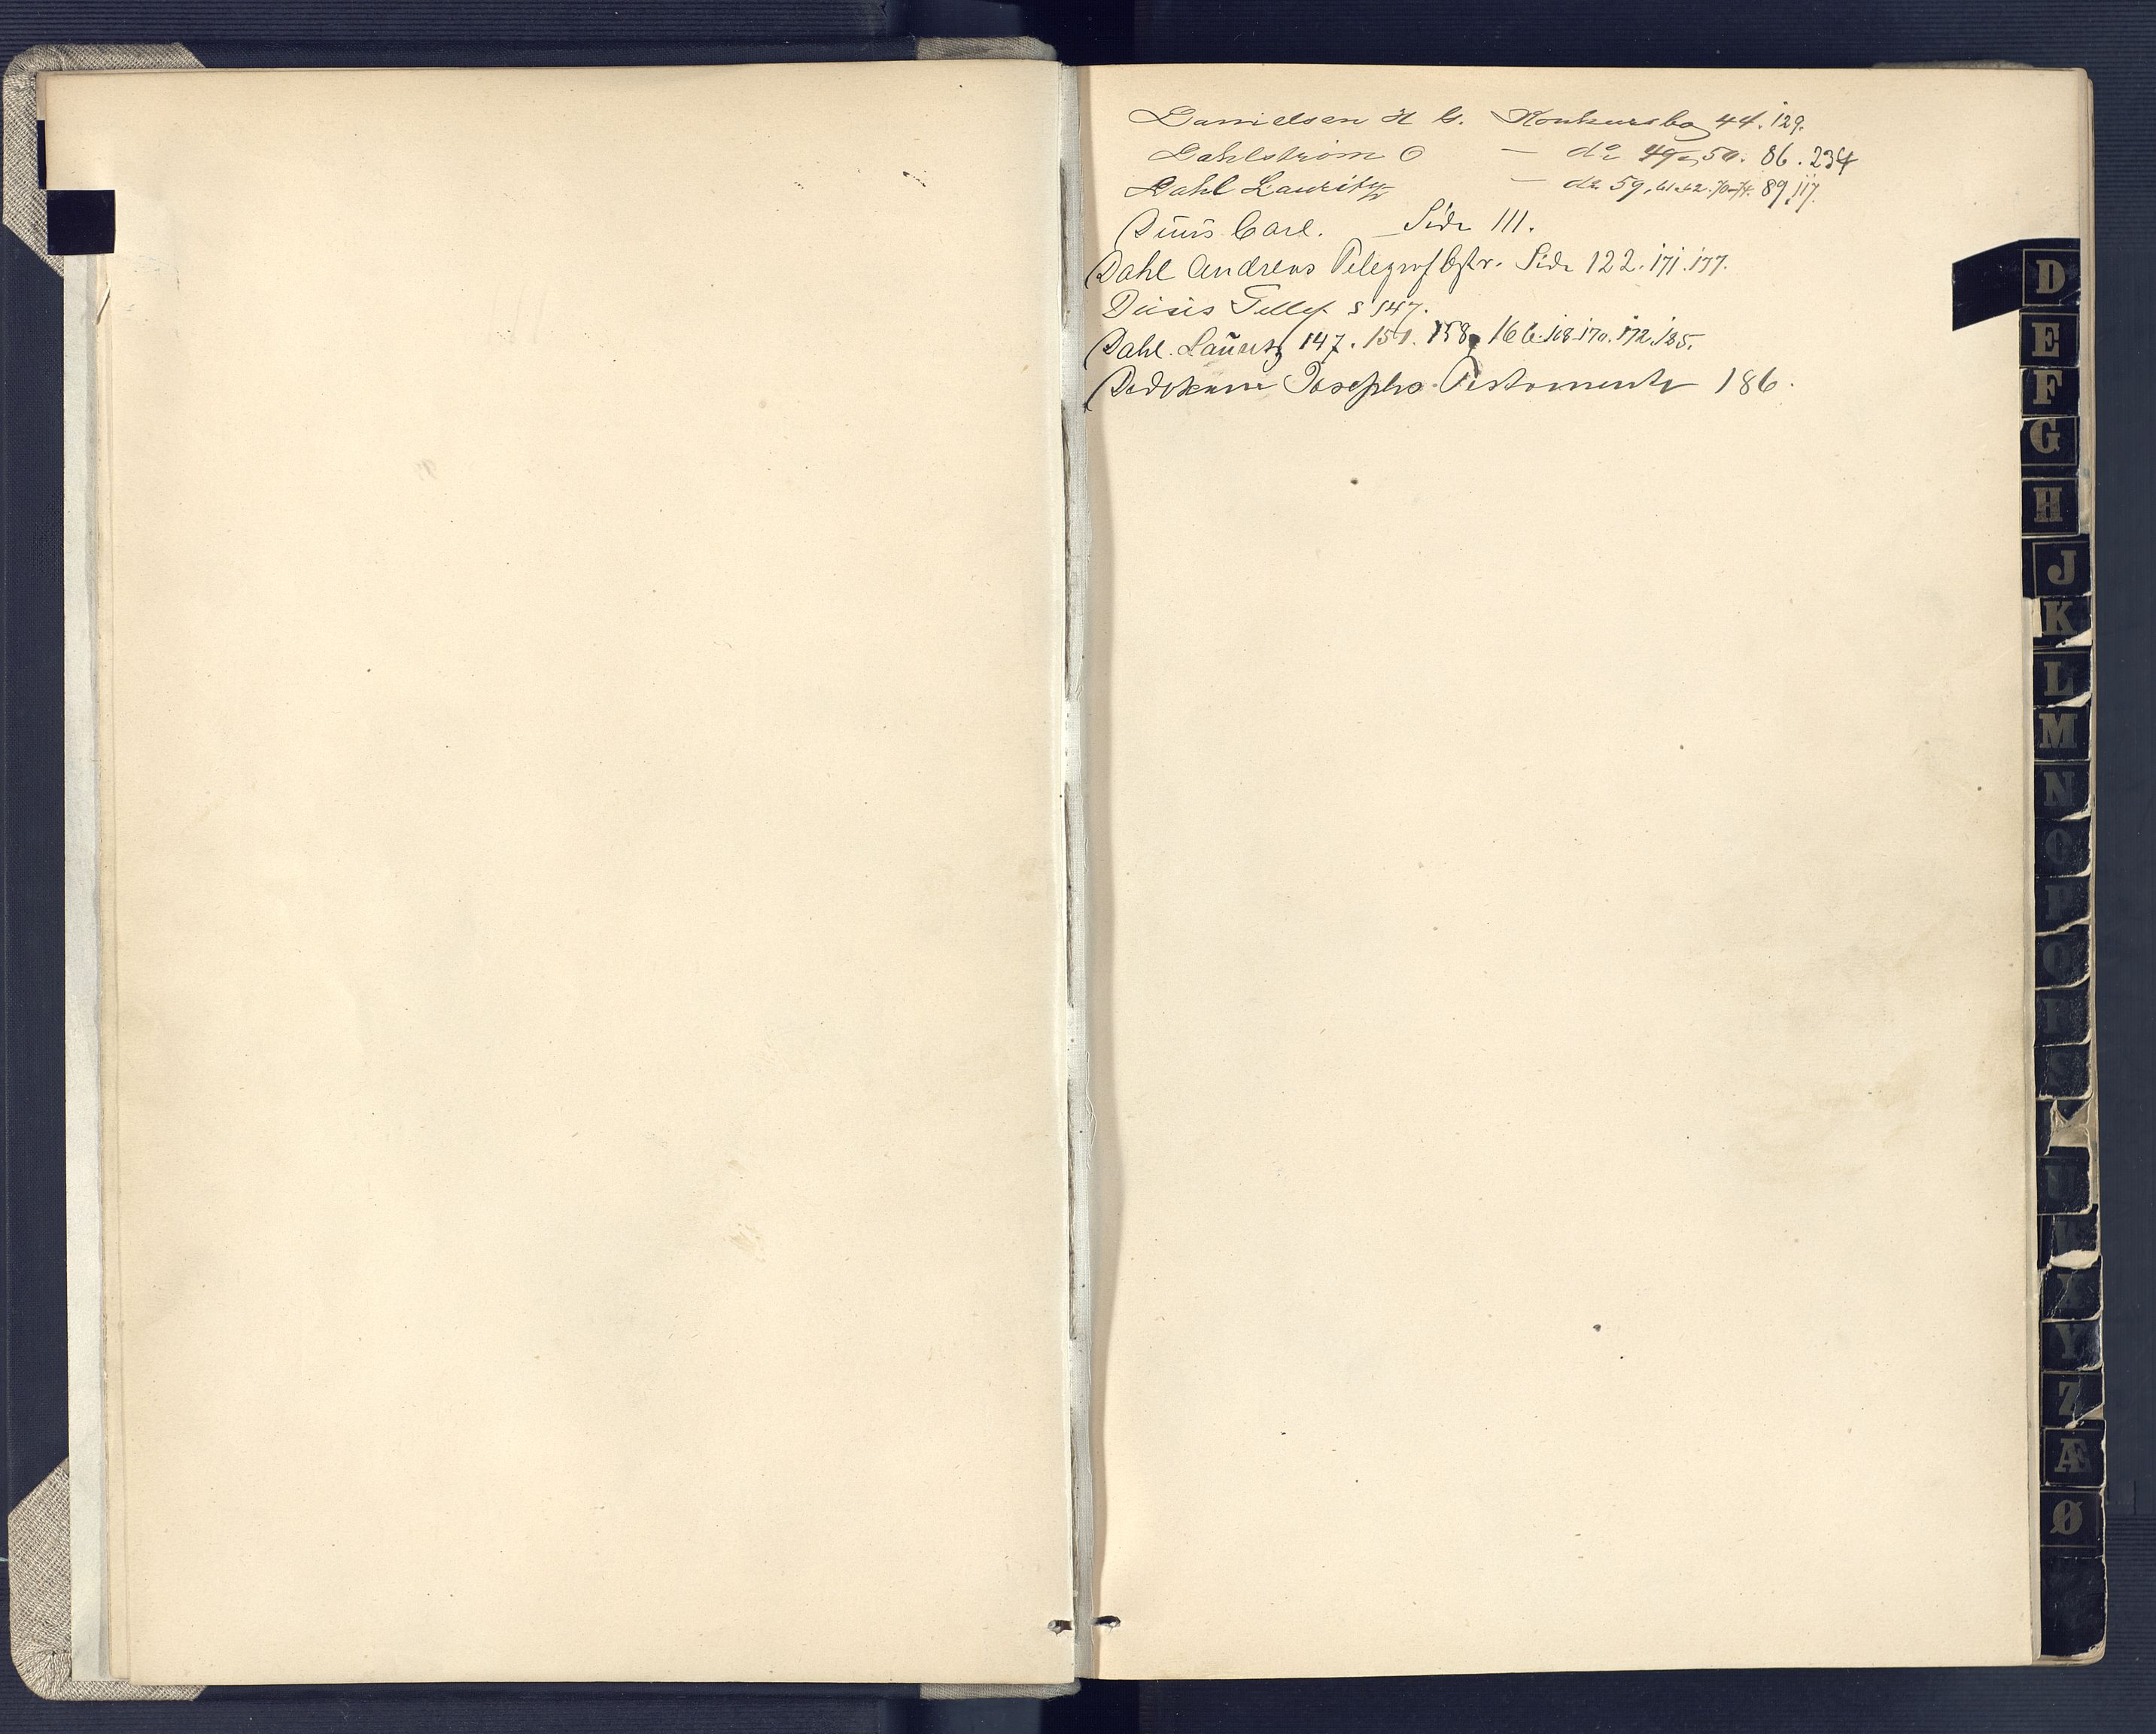 Danielsen H C. Konkursbo 44. 129.
Dahlström O — do 49, 50. 86. 234
Dahl Lauritz — do 59, 61. 62. 70-74. 89 117.
Duus Carl. — Side 111.
Dahl Andreas Telegrafbstr. Side 122. 171. 177.
Duus Tilly. S 147.
Dahl. Lauritz 147. 151. 158, 166. 168. 170. 172. 185.
Josepha Testamente 186.
D
E
F
G
H
J
K
L
M
N
O
P
Q
R
S
U
X
Y
Z
Æ
Ø